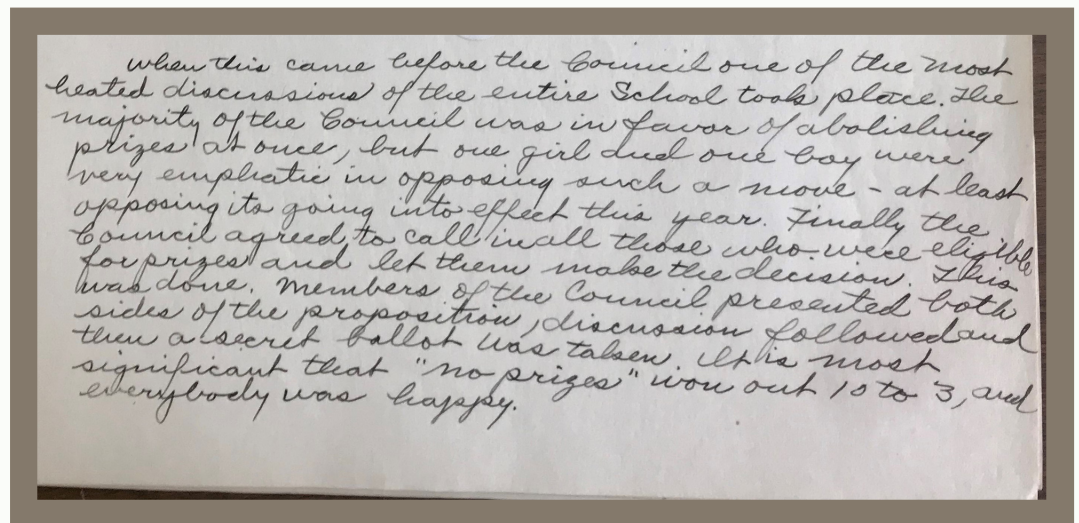 when this came before the Council one of the most
heated discussions of the entire School took place. The
majority of the Council was in favor of abolishing
prizes at once, but one girl and one boy were
very emphatic in opposing such a move - at least
opposing its going into effect this year. Finally the
Council agreed to call in all those who were eligible
for prizes and let them make the decision. This
was done. Members of the Council presented both
sides of the proposition, discussion followed and
then a secret ballot was taken. It is most
significant that "no prizes" won out 10 to 3, and
everybody was happy.